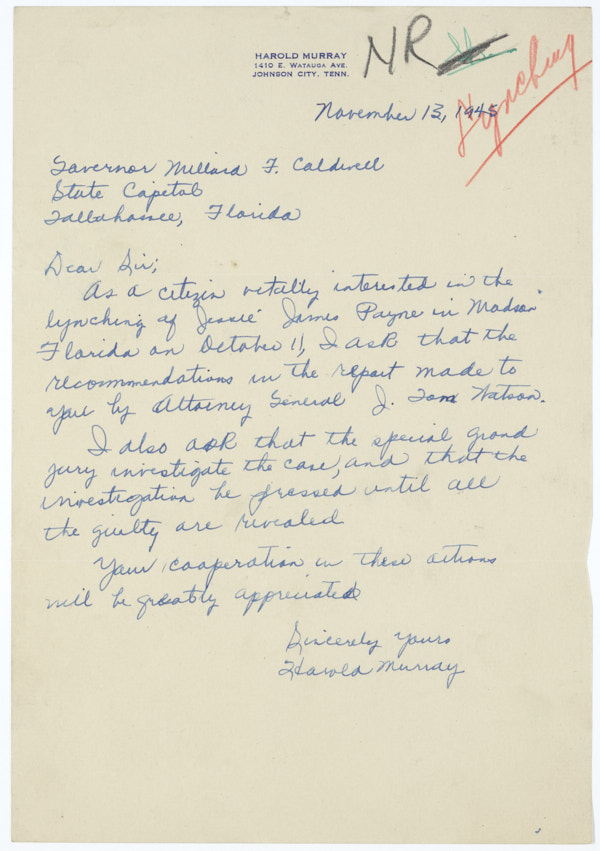 HAROLD MURRAY
1410 E. WATAUGA AVE.
JOHNSON CITY, TENN.
NR
Lynching
November 13, 1945
Governor Millard F. Caldwell
State Capitol
Tallahassee, Florida
Dear Sir;
As a citizen vitally interested in the
lynching of Jessie James Payne in Madison
Florida on October 11, I ask that the
recommendations in the report made to
you by Attorney General J. Tom Watson.
I also ask that the special grand
jury investigate the case, and that the
investigation be pressed until all
the guilty are revealed
Your cooperation in these actions
will be greatly appreciated
Sincerely Yours
Harold Murray